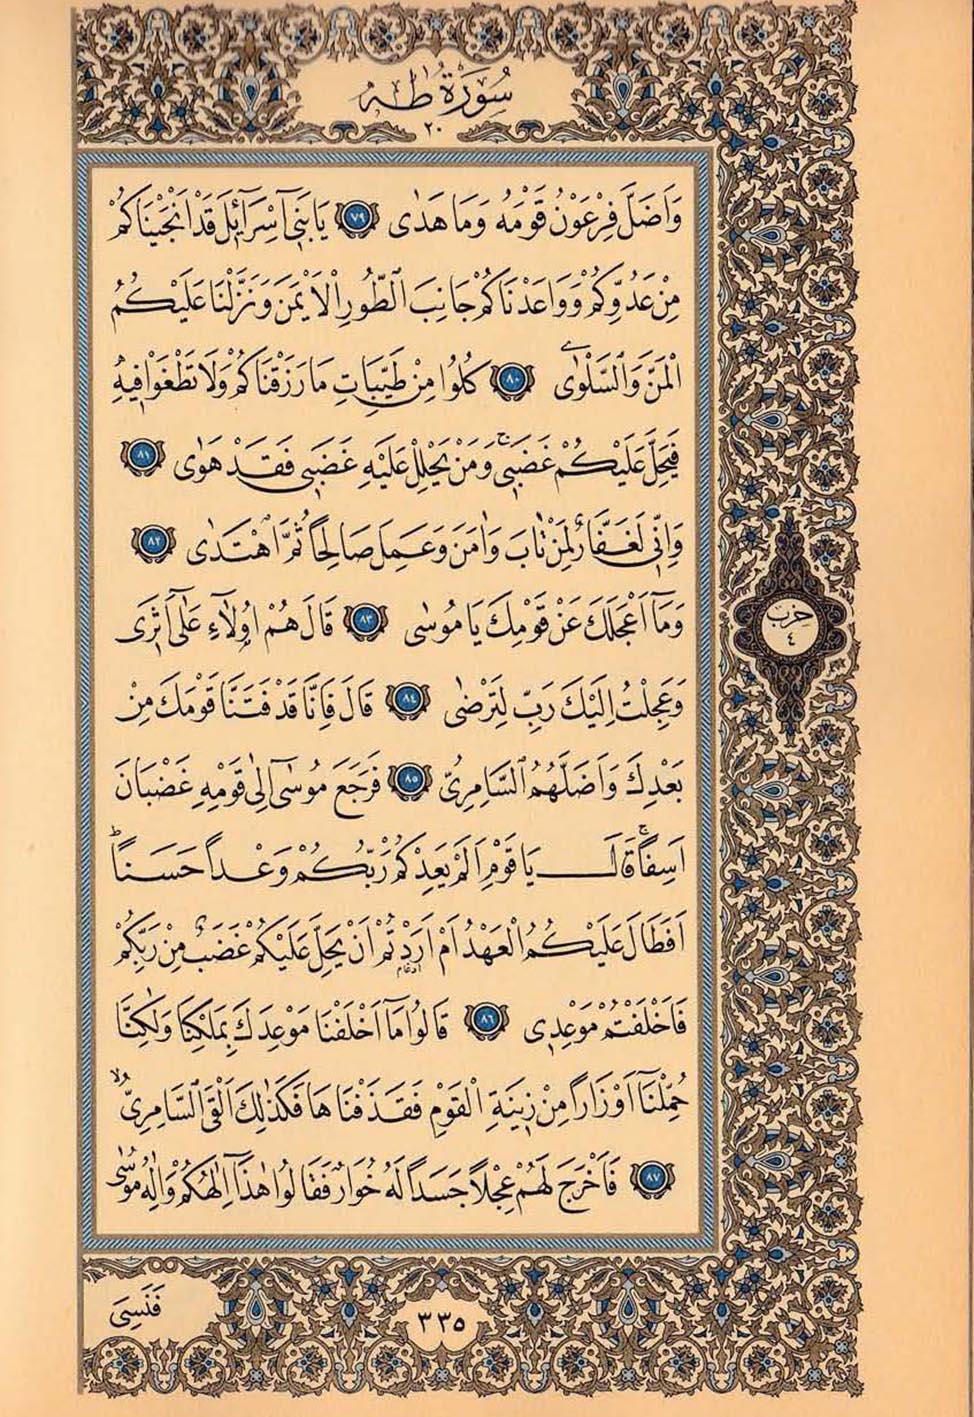 سُورَةُ طٰهٰ
٢٠
وَاَضَلَّ فِرْعَوْنُ قَوْمَهُ وَمَا هَدٰى ﴿٧٩﴾ يَا بَنٓى اِسْرَٓائٖلَ قَدْ اَنْجَيْنَاكُمْ
مِنْ عَدُوِّكُمْ وَوَاعَدْنَاكُمْ جَانِبَ الطُّورِ الْاَيْمَنَ وَنَزَّلْنَا عَلَيْكُمُ
الْمَنَّ وَالسَّلْوٰى ﴿٨٠﴾ كُلُوا مِنْ طَيِّبَاتِ مَا رَزَقْنَاكُمْ وَلَا تَطْغَوْا فٖيهِ
فَيَحِلَّ عَلَيْكُمْ غَضَبٖىۚ وَمَنْ يَحْلِلْ عَلَيْهِ غَضَبٖى فَقَدْ هَوٰى ﴿٨١﴾
وَاِنّٖى لَغَفَّارٌ لِمَنْ تَابَ وَاٰمَنَ وَعَمِلَ صَالِحًا ثُمَّ اهْتَدٰى ﴿٨٢﴾
وَمَٓا اَعْجَلَكَ عَنْ قَوْمِكَ يَا مُوسٰى ﴿٨٣﴾ قَالَ هُمْ اُو۬لَٓاءِ عَلٰٓى اَثَرٖى
وَعَجِلْتُ اِلَيْكَ رَبِّ لِتَرْضٰى ﴿٨٤﴾ قَالَ فَاِنَّا قَدْ فَتَنَّا قَوْمَكَ مِنْ
بَعْدِكَ وَاَضَلَّهُمُ السَّامِرِىُّ ﴿٨٥﴾ فَرَجَعَ مُوسٰٓى اِلٰى قَوْمِهٖ غَضْبَانَ
اَسِفًاۚ قَالَ يَا قَوْمِ اَلَمْ يَعِدْكُمْ رَبُّكُمْ وَعْدًا حَسَنًاۜ
اَفَطَالَ عَلَيْكُمُ الْعَهْدُ اَمْ اَرَدْتُمْ اَنْ يَحِلَّ عَلَيْكُمْ غَضَبٌ مِنْ رَبِّكُمْ
فَاَخْلَفْتُمْ مَوْعِدٖى ﴿٨٦﴾ قَالُوا مَٓا اَخْلَفْنَا مَوْعِدَكَ بِمَلْكِنَا وَلٰكِنَّا
حُمِّلْنَٓا اَوْزَارًا مِنْ زٖينَةِ الْقَوْمِ فَقَذَفْنَاهَا فَكَذٰلِكَ اَلْقَى السَّامِرِىُّۙ
﴿٨٧﴾ فَاَخْرَجَ لَهُمْ عِجْلًا جَسَدًا لَهُ خُوَارٌ فَقَالُوا هٰذَٓا اِلٰهُكُمْ وَاِلٰهُ مُوسٰى
حزب
٤
فَنَسِىَ
٣٣٥